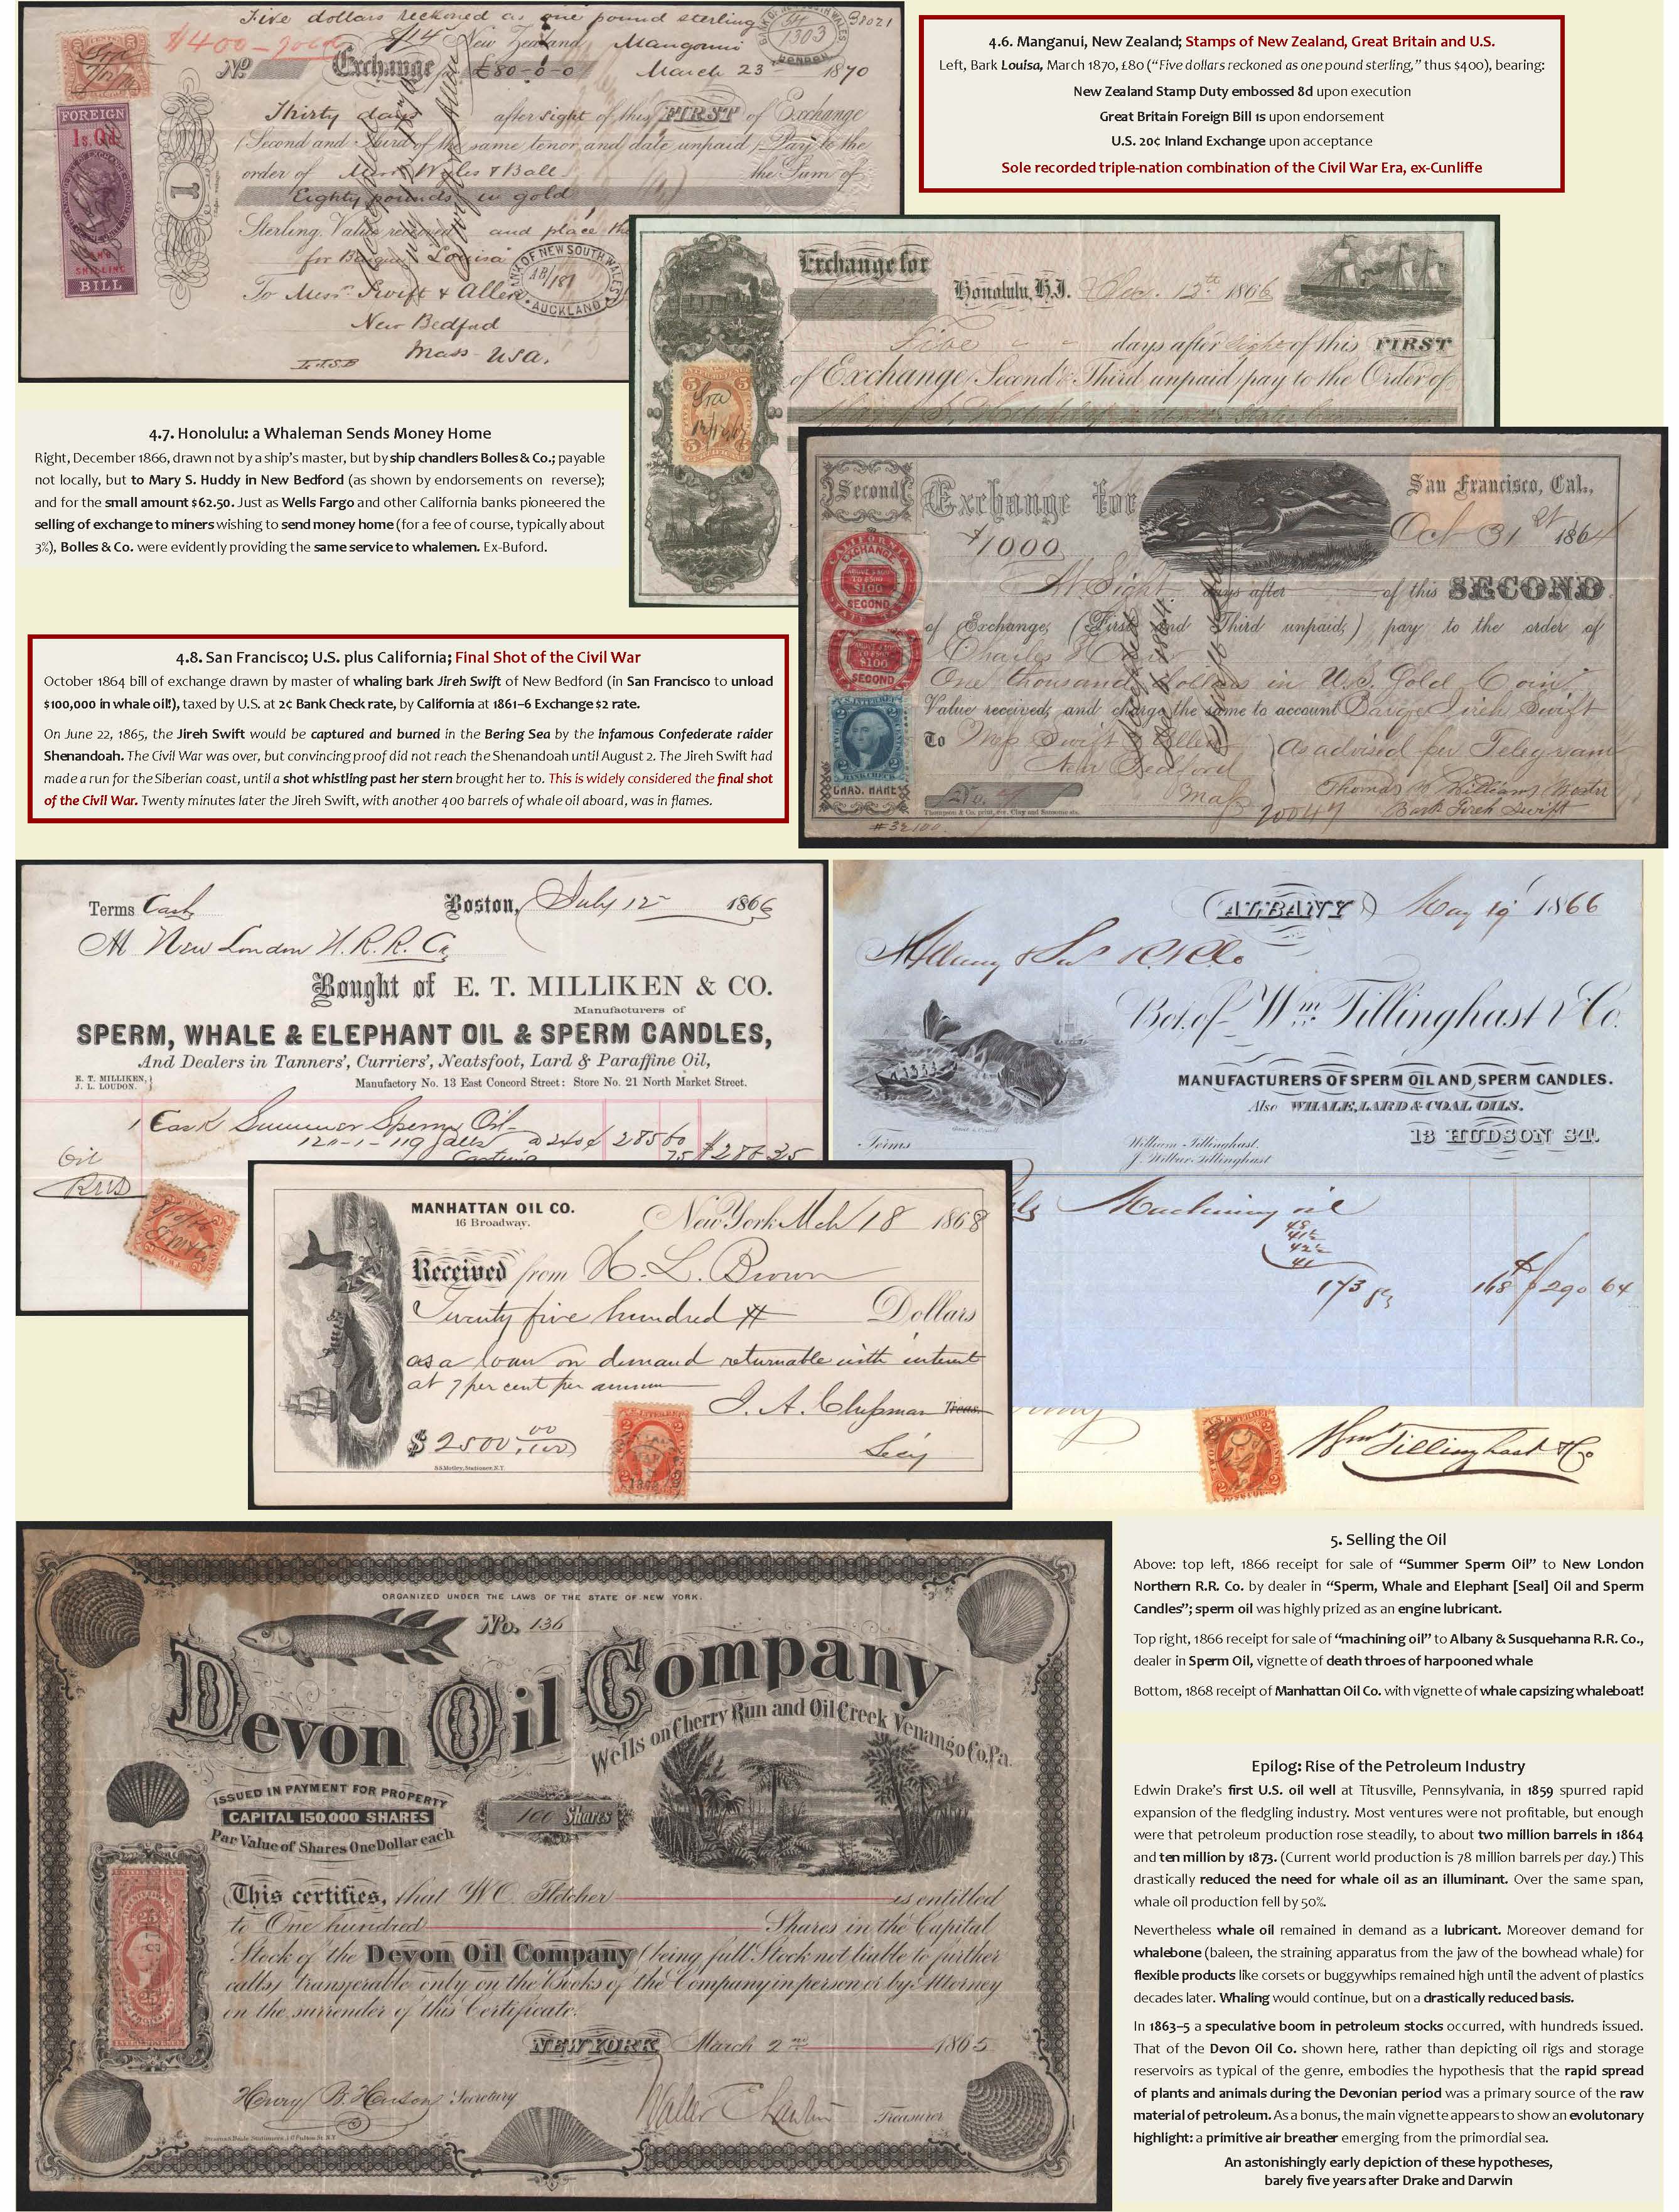 Five dollars reckoned as one pound sterling
38021
$400 – gold
$14
New Zealand Mangonui
No Exchange £80-0-0 March 23rd 1870
Thirty days after sight of this FIRST of Exchange
(Second and Third of the same tenor and date unpaid) Pay to the
order of Messrs Wyles & Ball the Sum of
Eighty pounds in gold
Sterling Value received and place the
for Barque Louisa
To Messrs Swift & Allen
New Bedford
Mass. USA.
FOREIGN
1s. 0d.
SHILLING
BILL
1
1303
LONDON
BANK OF NEW SOUTH WALES
AUCKLAND
4.6. Manganui, New Zealand; Stamps of New Zealand, Great Britain and U.S.
Left, Bark Louisa, March 1870, £80 (“Five dollars reckoned as one pound sterling,” thus $400), bearing:
New Zealand Stamp Duty embossed 8d upon execution
Great Britain Foreign Bill 1s upon endorsement
U.S. 20¢ Inland Exchange upon acceptance
Sole recorded triple-nation combination of the Civil War Era, ex-Cunliffe
Exchange for
Honolulu, H.I. Dec. 12th 1866
Five - - days after sight of this FIRST
of Exchange, Second & Third unpaid, pay to the Order of
4.7. Honolulu: a Whaleman Sends Money Home
Right, December 1866, drawn not by a ship’s master, but by ship chandlers Bolles & Co.; payable
not locally, but to Mary S. Huddy in New Bedford (as shown by endorsements on reverse);
and for the small amount $62.50. Just as Wells Fargo and other California banks pioneered the
selling of exchange to miners wishing to send money home (for a fee of course, typically about
3%), Bolles & Co. were evidently providing the same service to whalemen. Ex-Buford.
Second Exchange for San Francisco, Cal.,
$1000 Oct 31st 1864
At Sight days after of this SECOND
of Exchange, (First and Third unpaid,) pay to the order of
Charles
One thousand Dollars in U.S. Gold Coin
Value received, and charge the same to account Barque Jireh Swift
To Mess Swift & Allen As advised per Telegram
New Bedford
Mass
Thomas W Williams Master
Bark Jireh Swift
No.
20047
#32100
CHAS. HARE
CALIFORNIA
EXCHANGE
$100
SECOND
$100
SECOND
BANK CHECK
4.8. San Francisco; U.S. plus California; Final Shot of the Civil War
October 1864 bill of exchange drawn by master of whaling bark Jireh Swift of New Bedford (in San Francisco to unload
$100,000 in whale oil!), taxed by U.S. at 2¢ Bank Check rate, by California at 1861–6 Exchange $2 rate.
On June 22, 1865, the Jireh Swift would be captured and burned in the Bering Sea by the infamous Confederate raider
Shenandoah. The Civil War was over, but convincing proof did not reach the Shenandoah until August 2. The Jireh Swift had
made a run for the Siberian coast, until a shot whistling past her stern brought her to. This is widely considered the final shot
of the Civil War. Twenty minutes later the Jireh Swift, with another 400 barrels of whale oil aboard, was in flames.
Terms Cash Boston, July 12 1866
M New London N.R.R. Co
Bought of E. T. MILLIKEN & CO.
Manufacturers of
SPERM, WHALE & ELEPHANT OIL & SPERM CANDLES,
And Dealers in Tanners’, Curriers’, Neatsfoot, Lard & Paraffine Oil,
E. T. MILLIKEN,
J. L. LOUDON.
Manufactory No. 13 East Concord Street: Store No. 21 North Market Street.
1 Cask Summer Sperm Oil
120-1-119 galls a 240¢ 285 60
75 $286 35
Oil
ALBANY May 19 1866
Albany & Sus R.R. Co
Bot. of Wm. Tillinghast & Co.
MANUFACTURERS OF SPERM OIL AND SPERM CANDLES.
Also WHALE, LARD & COAL OILS.
13 HUDSON ST.
Terms
William Tillinghast.
J. Wilbur Tillinghast
Machining oil
48
41½
42½
41
173 168 $290 64
Wm Tillinghast & Co
MANHATTAN OIL CO.
16 Broadway.
New York Mch 18 1868
Received from H. L. Brown
Twenty five hundred Dollars
as a loan on demand returnable with interest
at 7 per cent per annum
J. A. Chipman Treas.
Secy
$2500.00
S.S. Motley, Stationer, N.Y.
5. Selling the Oil
Above: top left, 1866 receipt for sale of “Summer Sperm Oil” to New London
Northern R.R. Co. by dealer in “Sperm, Whale and Elephant [Seal] Oil and Sperm
Candles”; sperm oil was highly prized as an engine lubricant.
Top right, 1866 receipt for sale of “machining oil” to Albany & Susquehanna R.R. Co.,
dealer in Sperm Oil, vignette of death throes of harpooned whale
Bottom, 1868 receipt of Manhattan Oil Co. with vignette of whale capsizing whaleboat!
ORGANIZED UNDER THE LAWS OF THE STATE OF NEW YORK.
No. 136
Devon Oil Company
Wells on Cherry Run and Oil Creek Venango Co. Pa.
ISSUED IN PAYMENT FOR PROPERTY
CAPITAL 150,000 SHARES
Par Value of Shares One Dollar each
100 Shares
This certifies, that W C Fletcher is entitled
to One hundred Shares in the Capital
Stock of the Devon Oil Company (being full Stock not liable to further
calls) transferable only on the Books of the Company in person or by Attorney
on the surrender of this Certificate.
NEW YORK March 2nd 1865
Henry B. Henson Secretary
Treasurer
Epilog: Rise of the Petroleum Industry
Edwin Drake’s first U.S. oil well at Titusville, Pennsylvania, in 1859 spurred rapid
expansion of the fledgling industry. Most ventures were not profitable, but enough
were that petroleum production rose steadily, to about two million barrels in 1864
and ten million by 1873. (Current world production is 78 million barrels per day.) This
drastically reduced the need for whale oil as an illuminant. Over the same span,
whale oil production fell by 50%.
Nevertheless whale oil remained in demand as a lubricant. Moreover demand for
whalebone (baleen, the straining apparatus from the jaw of the bowhead whale) for
flexible products like corsets or buggywhips remained high until the advent of plastics
decades later. Whaling would continue, but on a drastically reduced basis.
In 1863–5 a speculative boom in petroleum stocks occurred, with hundreds issued.
That of the Devon Oil Co. shown here, rather than depicting oil rigs and storage
reservoirs as typical of the genre, embodies the hypothesis that the rapid spread
of plants and animals during the Devonian period was a primary source of the raw
material of petroleum. As a bonus, the main vignette appears to show an evolutonary
highlight: a primitive air breather emerging from the primordial sea.
An astonishingly early depiction of these hypotheses,
barely five years after Drake and Darwin